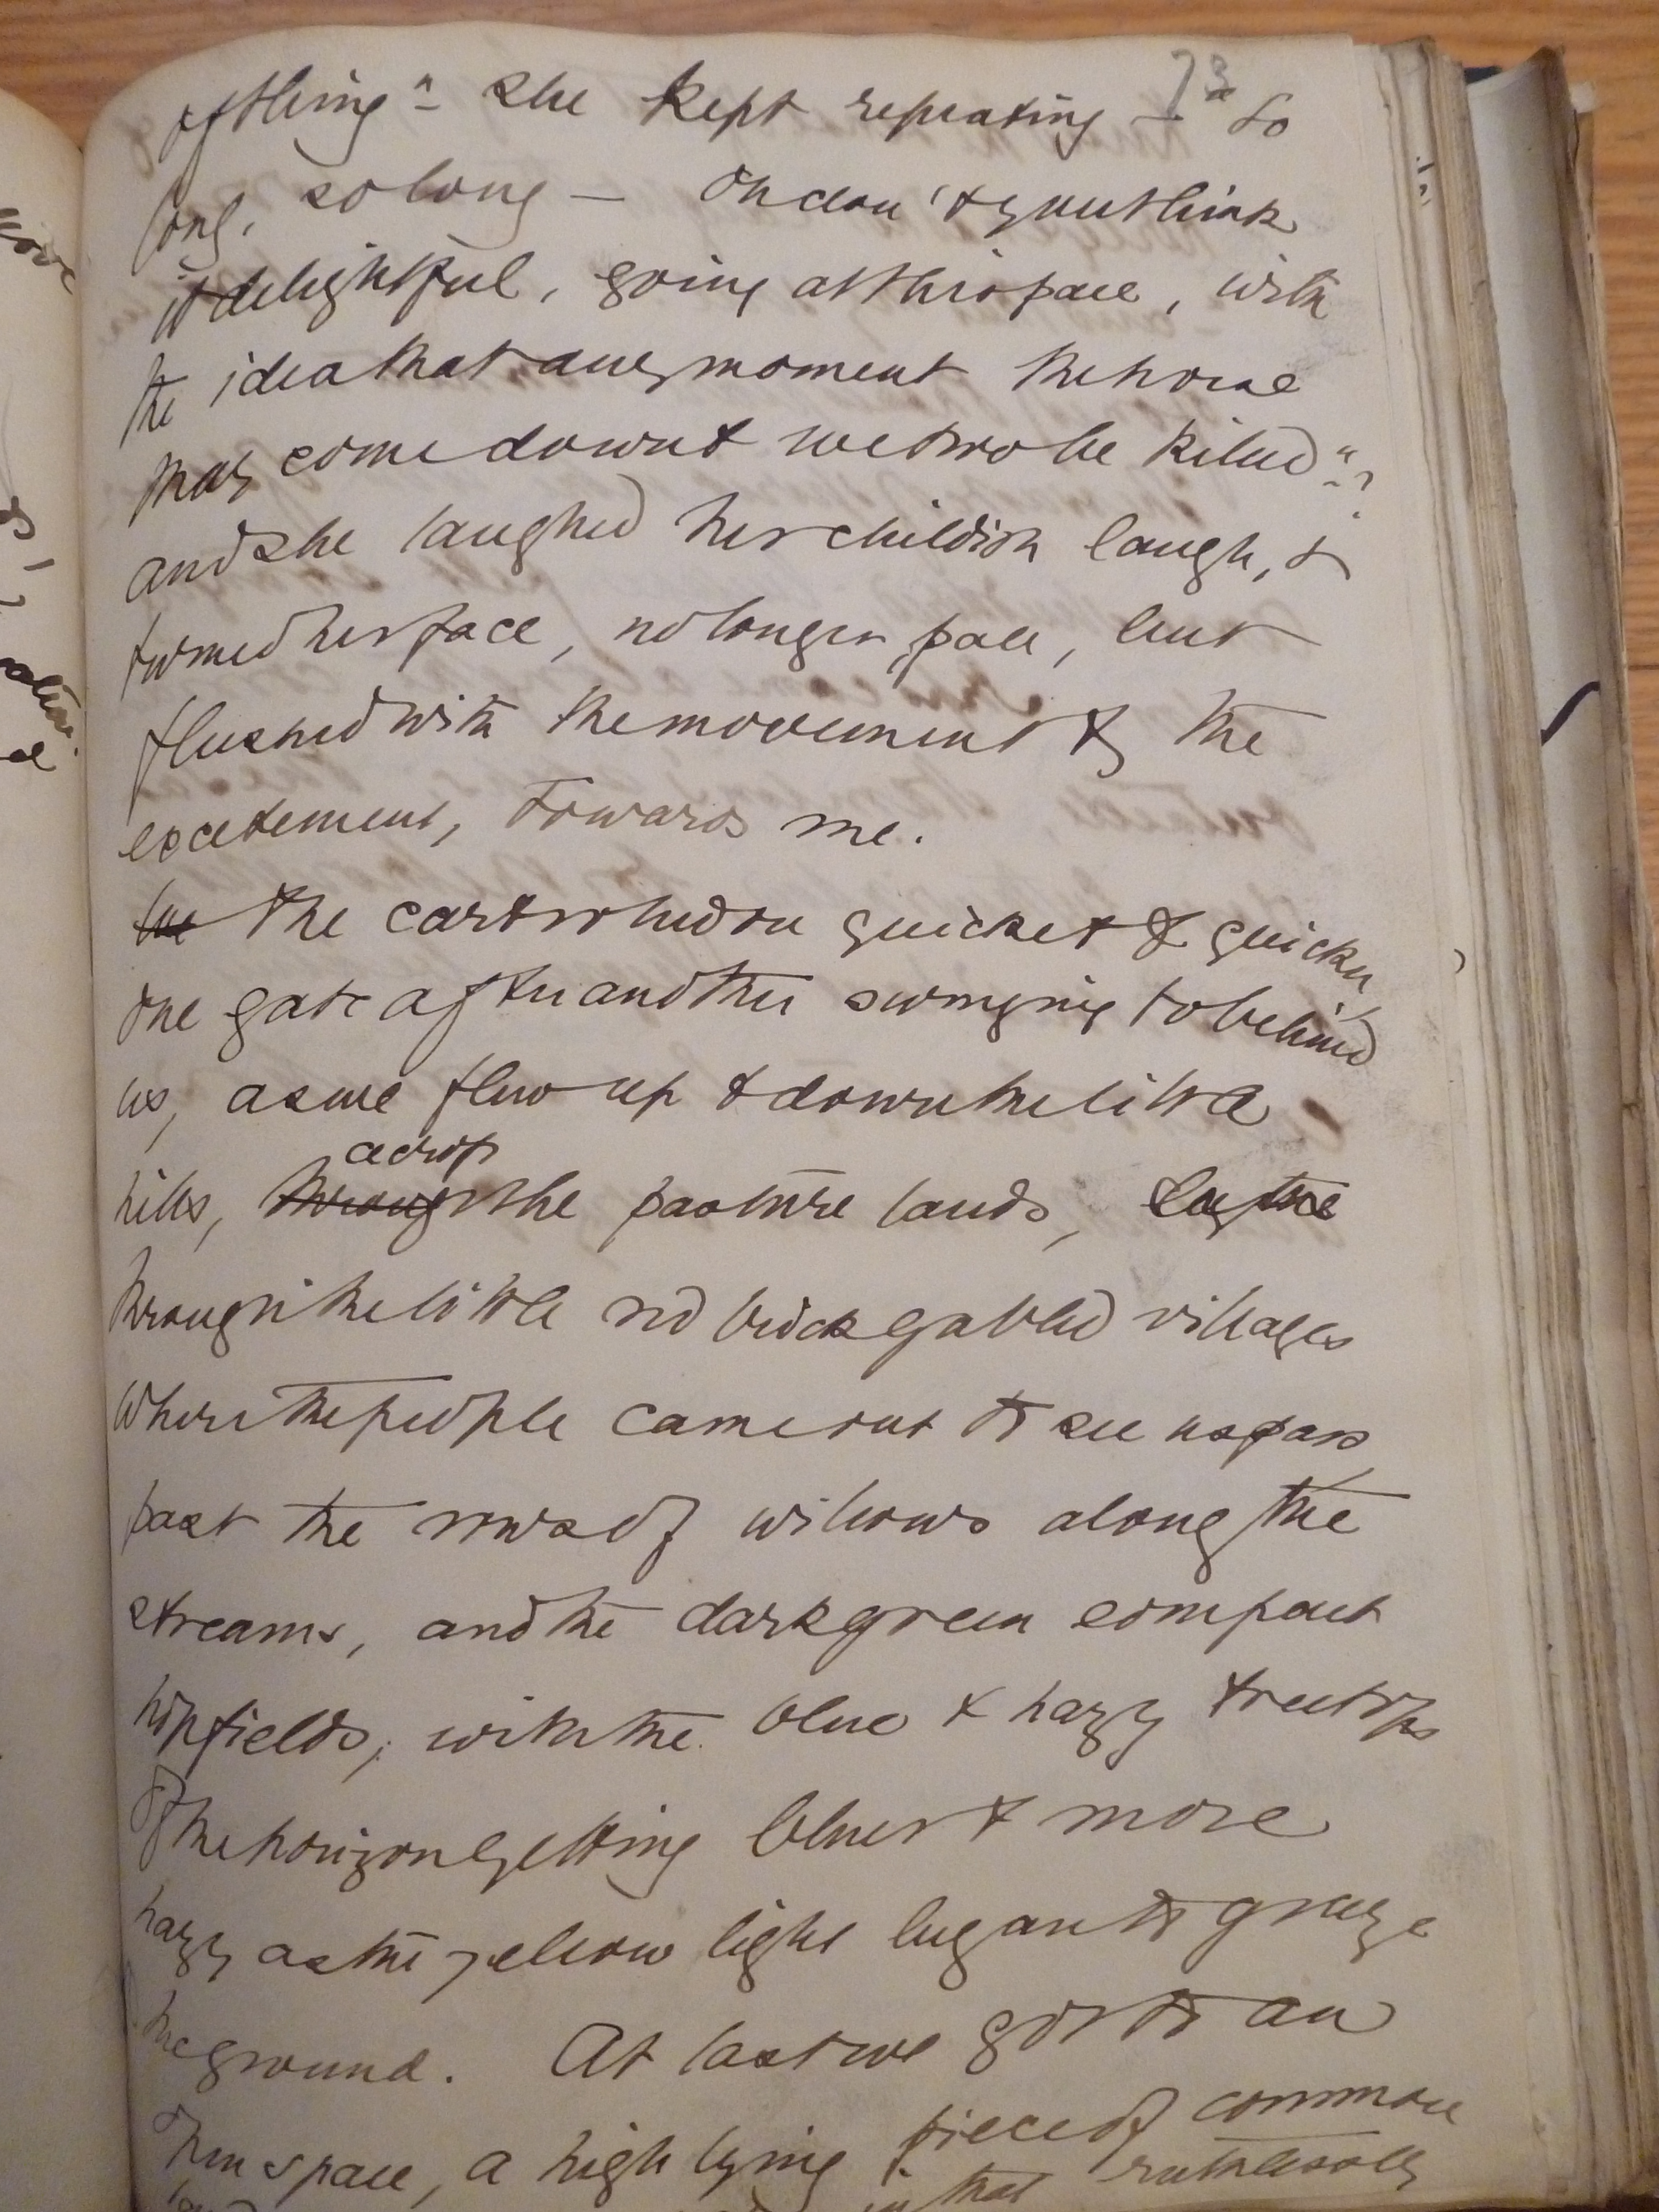 73
of thing" – she kept repeating – "so
long, so long – Oh don't you think
it delightful, going at this pace, with
the idea that any moment the horse
may come down & we two be killed"?
and she laughed her childish laugh, &
turned her face, no longer pale, but
flushed with the movement & the
excitement, towards me.
The cart rolled on quicker & quicker,
one gate after another swinging to behind
us, as we flew up & down the little
hills, across the pasture lands,
through the little red brick gabled villages
where the people came out to see us pass,
past the rows of willows along the
streams, and the dark green compact
hopfields, with the blue & hazy treetops
of the horizon getting bluer & more
hazy as the yellow light began to graze
the ground. At last we got to an
open space, a high lying piece of common
that ruthlessly